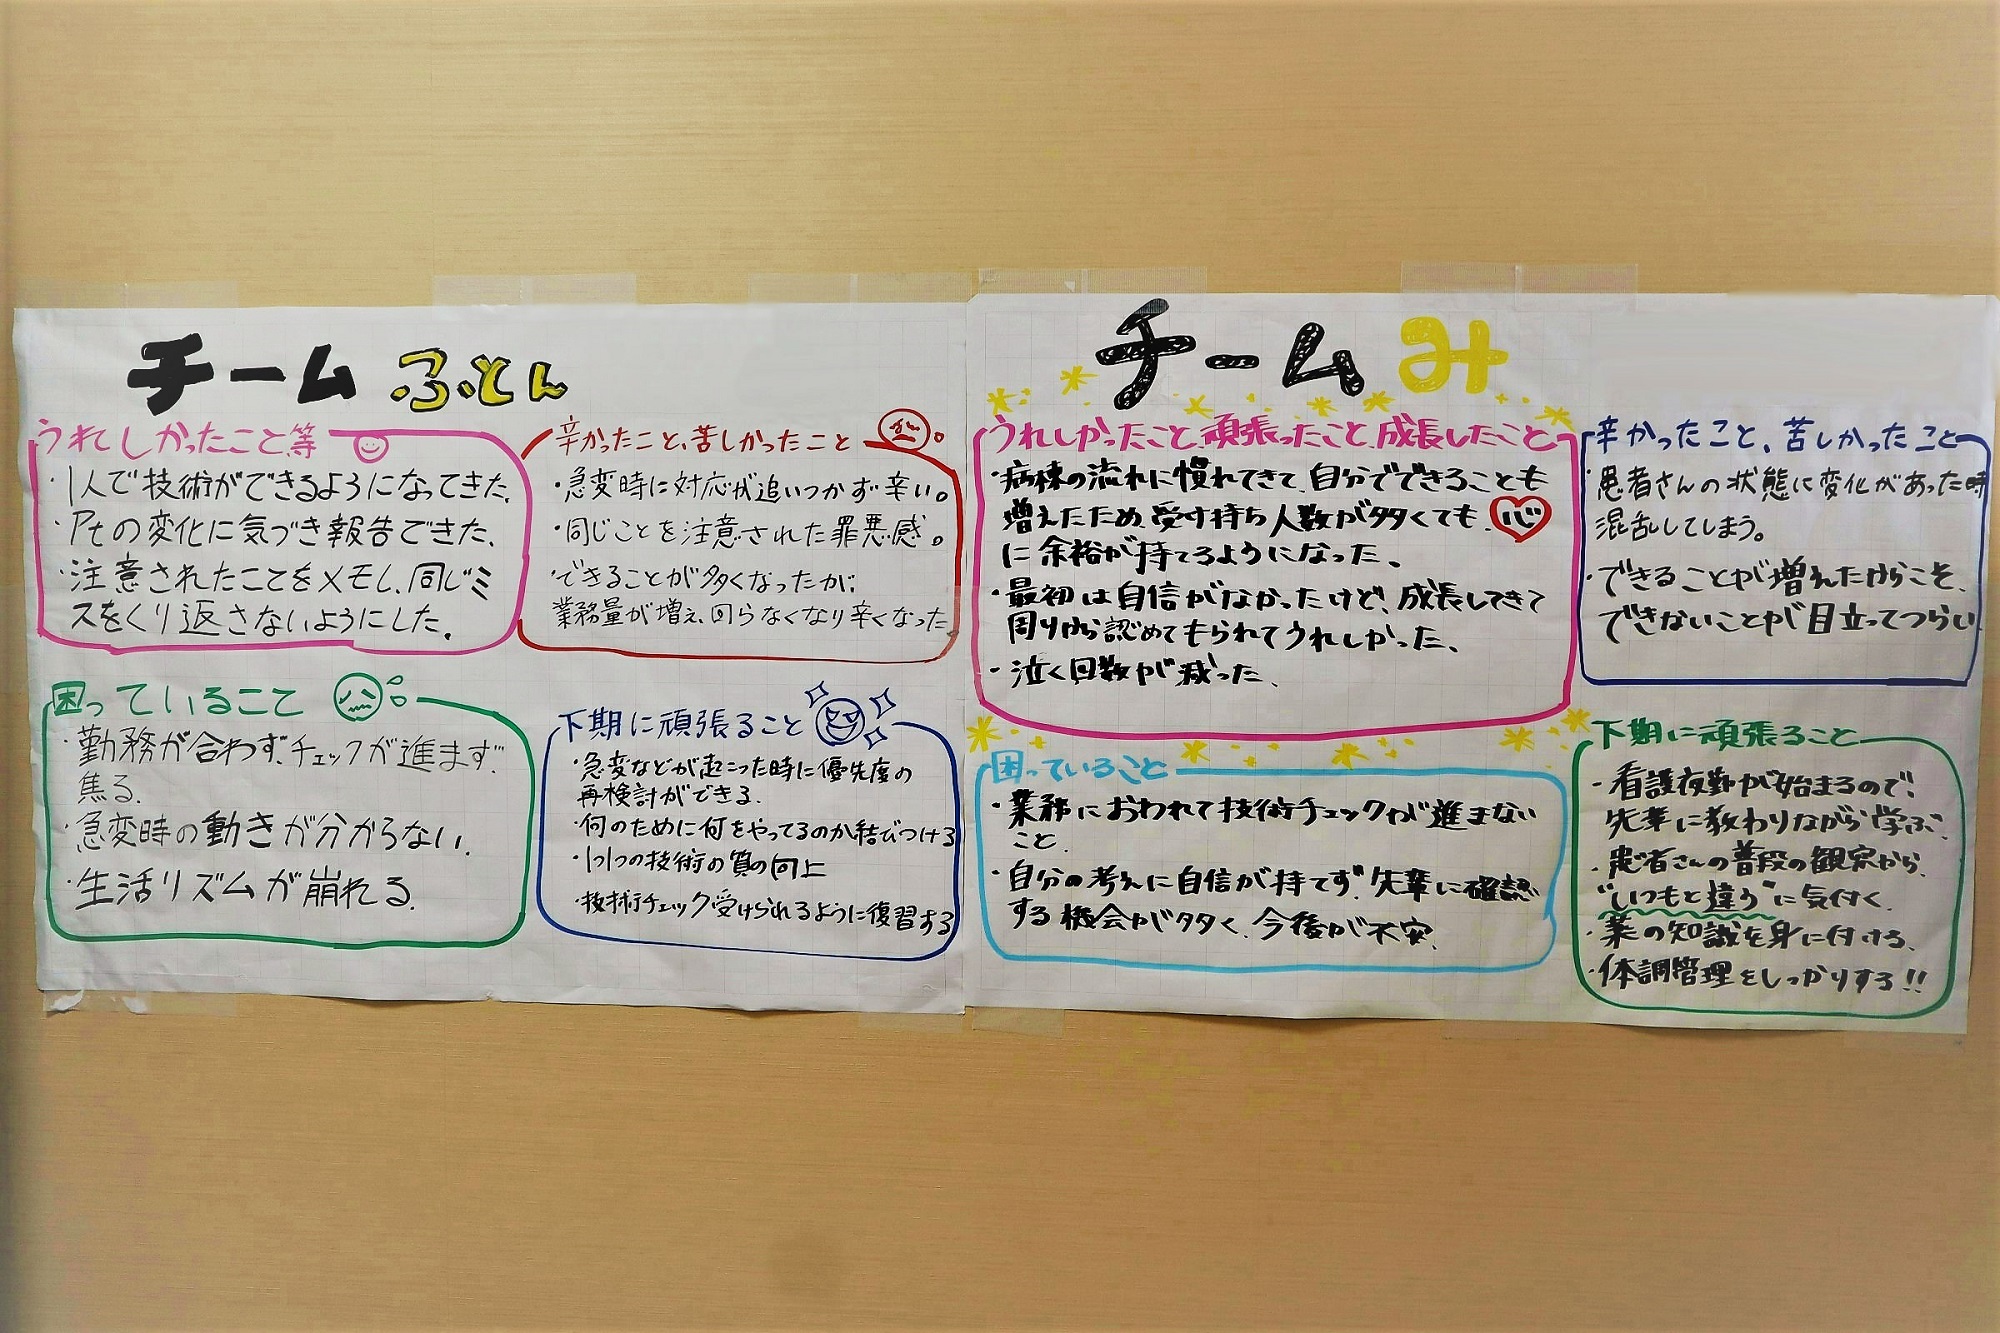 チーム ふとん
うれしかったこと等
・1人で技術ができるようになってきた.
・Ptの変化に気づき報告できた.
・注意されたことをメモし、同じミ
スをくり返さないようにした.
辛かったこと、苦しかったこと
・急変時に対応が追いつかず辛い。
・同じことを注意された罪悪感。
・できることが多くなったが、
業務量が増え、回らなくなり辛くなった
困っていること
・勤務が合わず、チェックが進まず、
焦る.
・急変時の動きが分からない.
・生活リズムが崩れる.
下期に頑張ること
・急変などが起こった時に優先度の
再検討ができる.
・何のために何をやってるのか結びつける
・1つ1つの技術の質の向上
・技術チェック受けられるように復習する
チームみ
うれしかったこと、頑張ったこと、成長したこと
・病棟の流れに慣れてきて、自分でできることも
増えたため、受け持ち人数が多くても、心
に余裕が持てるようになった、
・最初は自信がなかったけど、成長してきて
周りから認めてもられてうれしかった、
・泣く回数が減った、
辛かったこと、苦しかったこと
・患者さんの状態に変化があった時
混乱してしまう。
・できることが増えたからこそ、
できないことが目立ってつらい
困っていること
・業務におわれて技術チェックが進まない
こと.
・自分の考えに自信が持てず、先輩に確認
する機会が多く、今後が不安.
下期に頑張ること
・看護夜勤が始まるので、
先輩に教わりながら学ぶ、
・患者さんの普段の観察から、
"いつもと違う"に気付く、
・薬の知識を身に付ける、
・体調管理をしっかりする!!